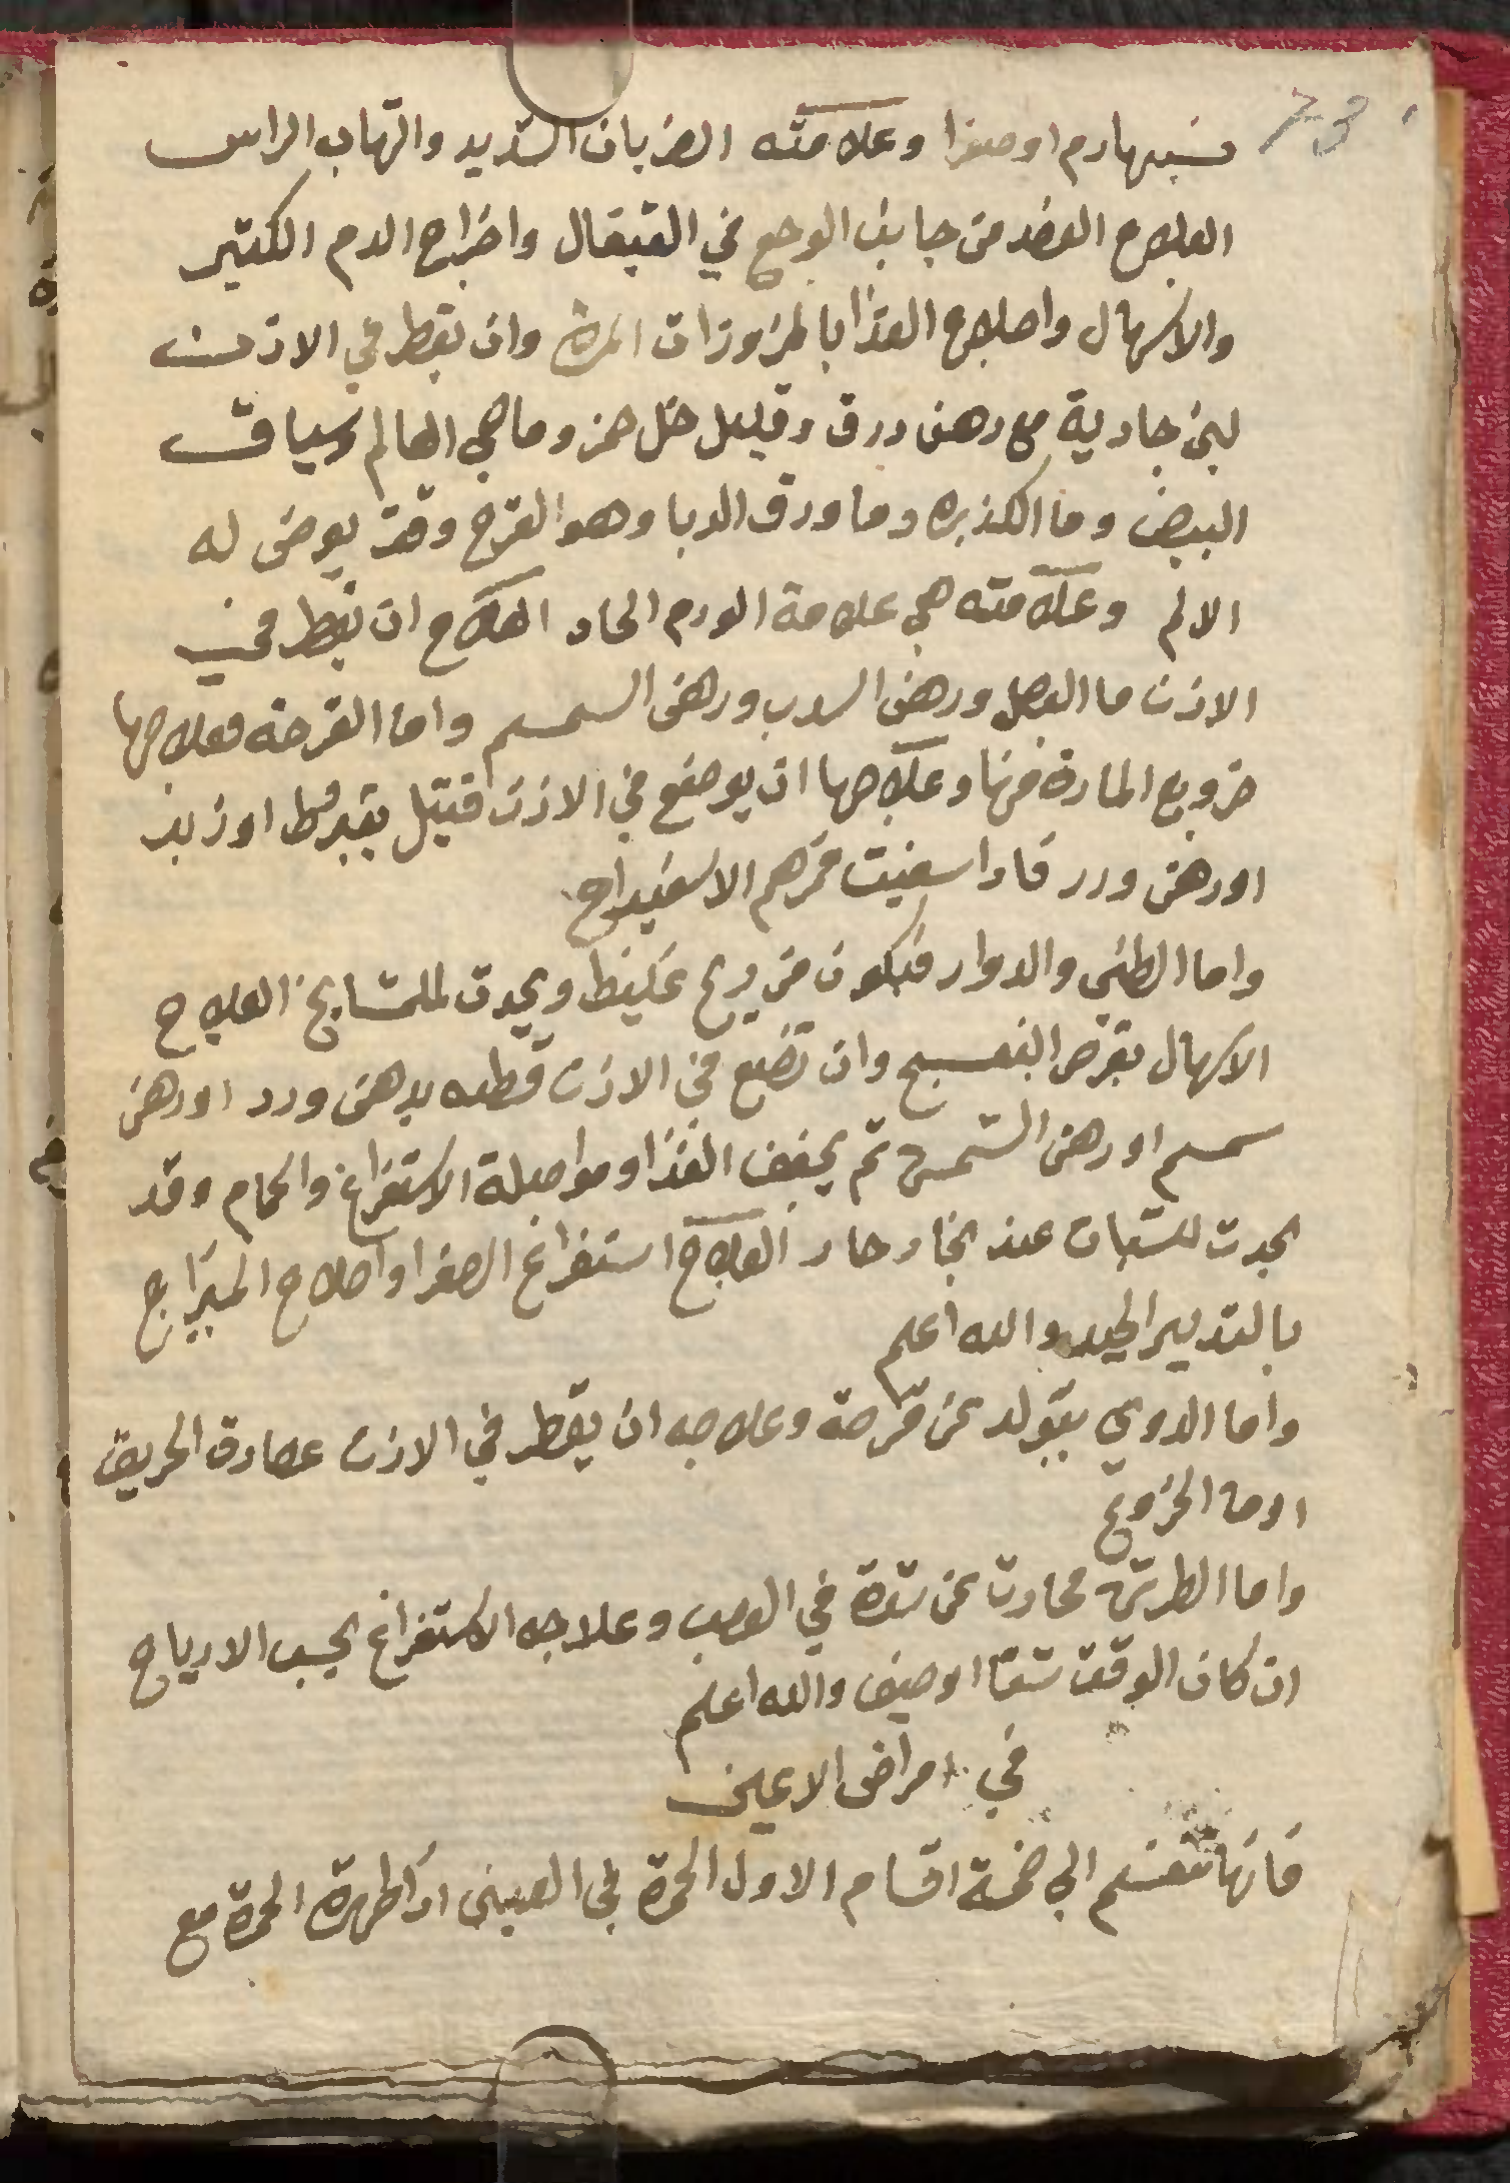 73
فسببها دم او صفرا وعلامته الضربان الشديد والتهاب الراس
العلاج الفصد من جانب الوجع في القيفال واخراج الدم الكثير
والاسهال واصلاح الغذا بالمزورات المزة وان يقطر في الاذن
لبن جارية مع دهن ورق وقليل خل خمر وما حي العالم وبياض
البيض وما الكذبره وما ورق الدبا وهو القرع وقد يعرض له
الالم وعلامته هي علامة الورم الحار العلاج ان يقطر في
الاذن ما البصل ودهن السدب ودهن السمسم واما القرحة فعلاجها
خروج المادة منها وعلاجها ان يوضع في الاذن فتيل بقيروط او زبد
او دهن ورد فاذا سفيت فمرهم الاسفيداج
واما الطنين والدوار فيكون من ريح غليظ ويحدث للمشايخ العلاج
الاسهال بقرص البنفسج وان تضع في الاذن قطنه بدهن ورد او دهن
سمسم او دهن المشمش ثم يخفف الغذا ومواصلة الاستفراغ والحمام وقد
يحدث للشبان عند بخار حار العلاج استفراغ الصفرا واصلاح المزاج
بالتدبير الجيد والله اعلم
واما الدوي يتولد عن قرحة وعلاجه ان يقطر في الاذن عصارة الحريق
او ما الخروع
واما الطرش فحادث عن سدة في العصب وعلاجه الاستفراغ بحسب الارياح
ان كان الوقت شتا او صيف والله اعلم
في امراض الاعين
فانها تنقسم الي خمسة اقسام الاول الحمرة في العينين اذا ظهرة الحمرة مع